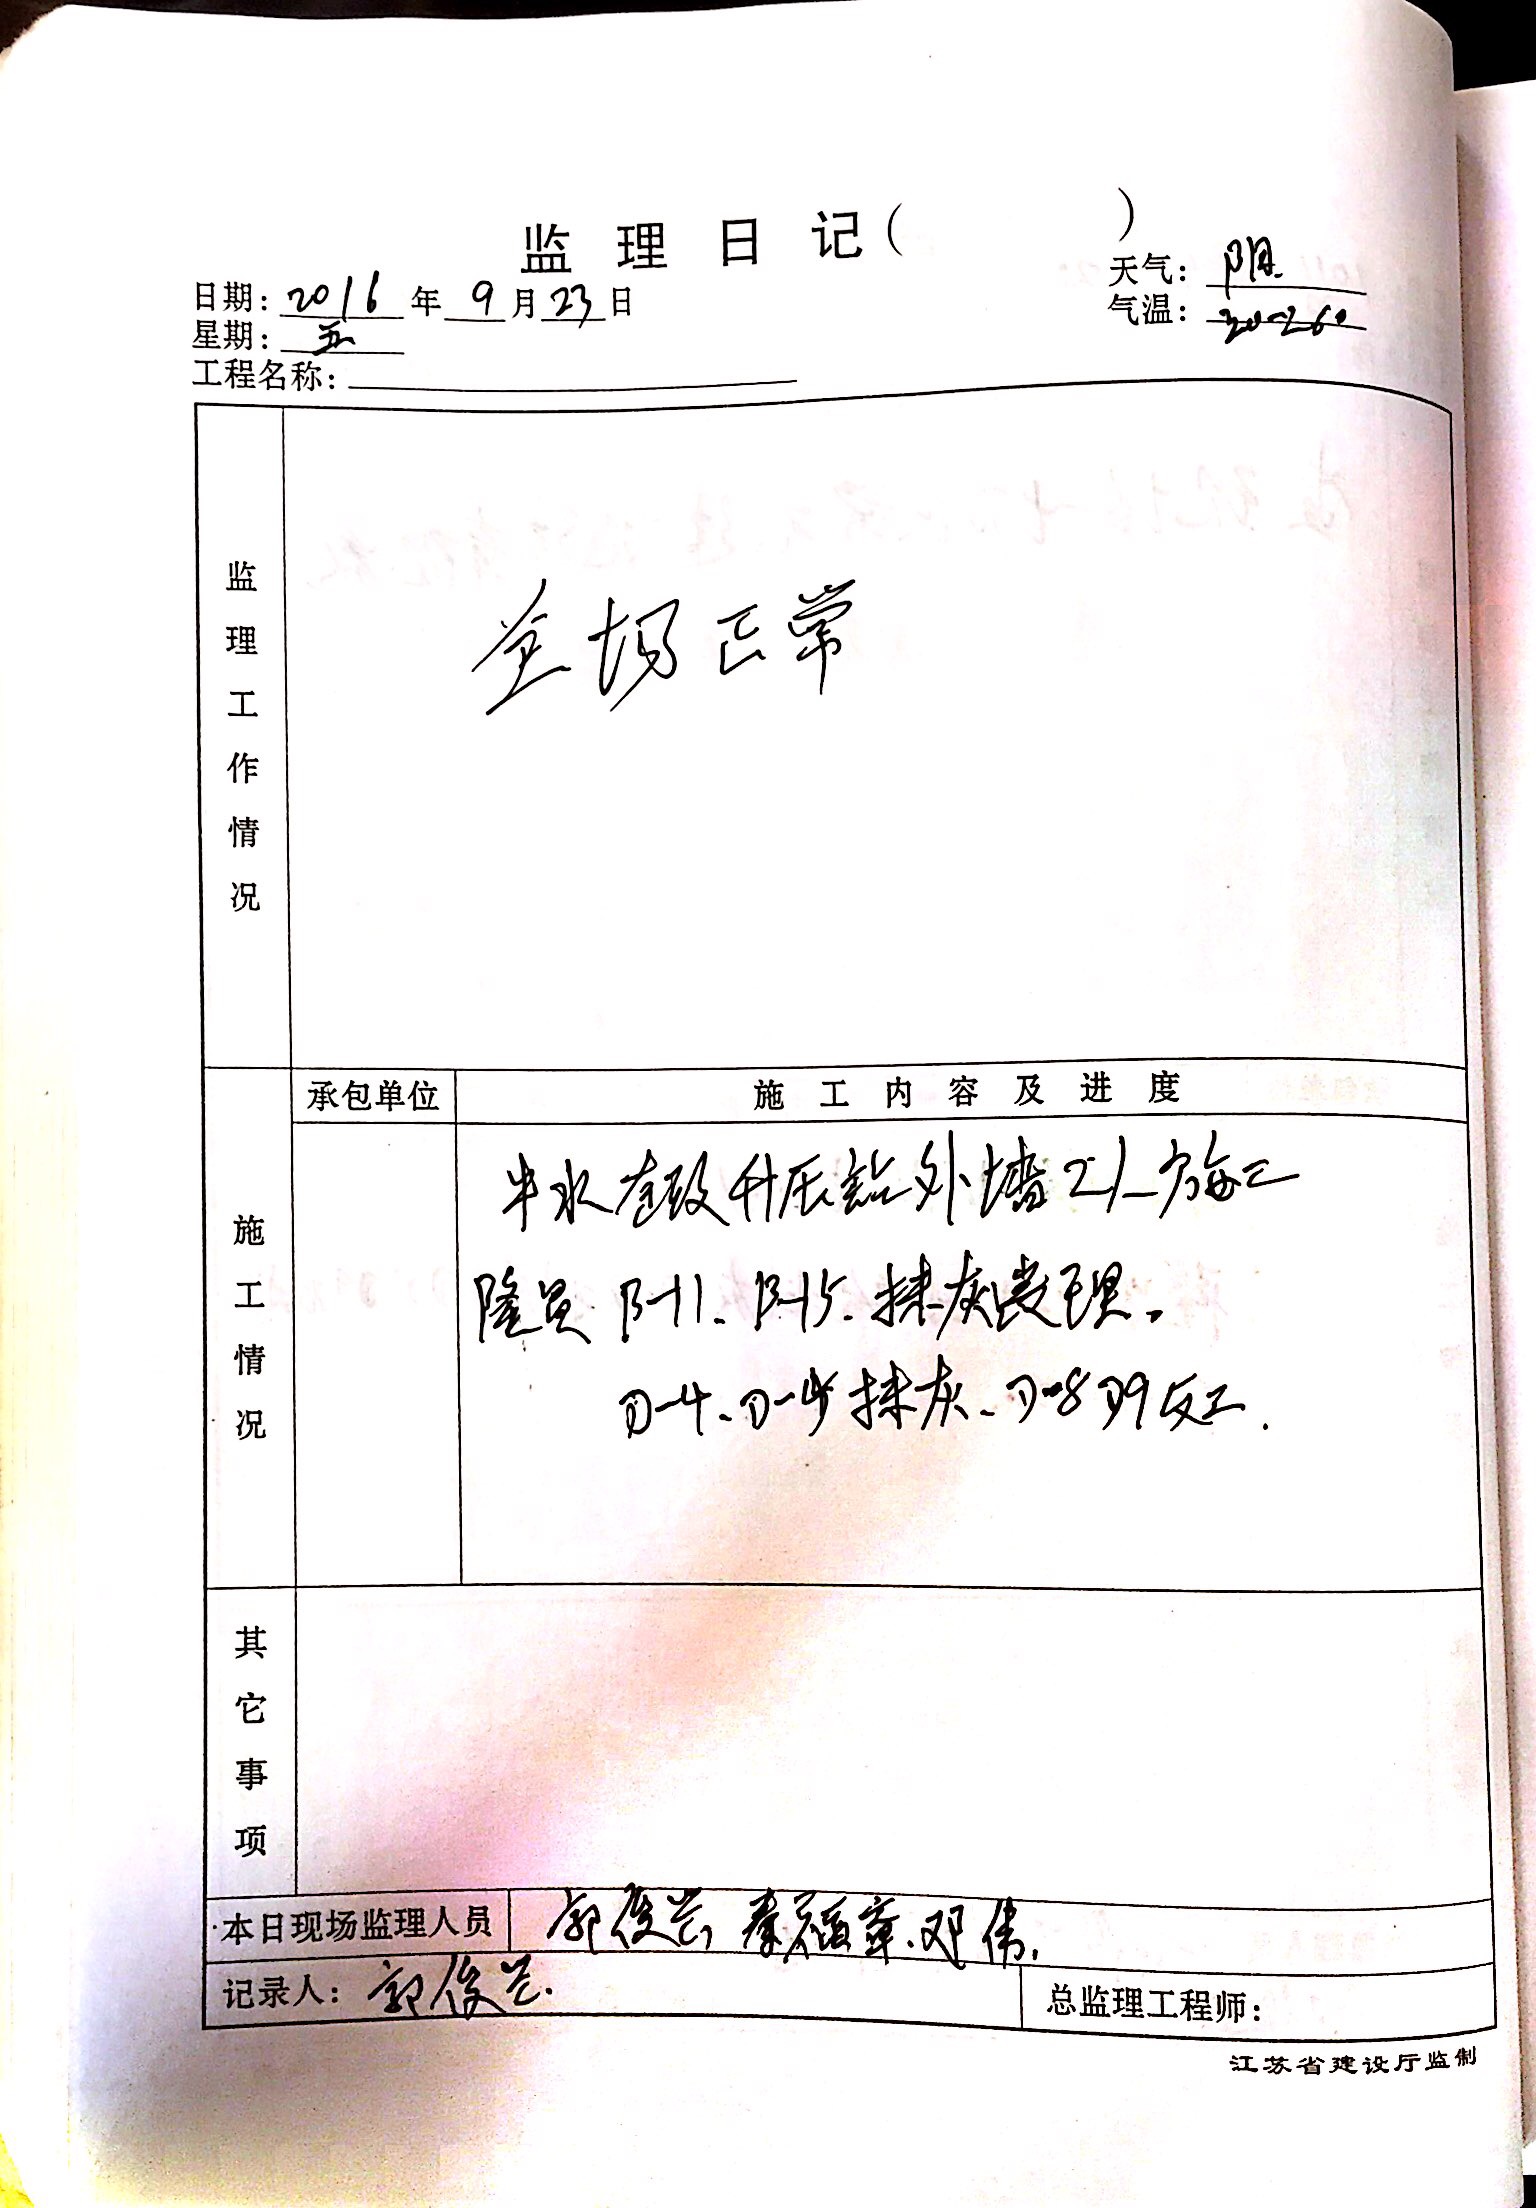 监理日记（ ）
日期：2016年9月23日
天气：阴
星期：五
气温：20-26°
工程名称：
监理工作情况
全场正常
承包单位
施工内容及进度
施工情况
中水 升压站外墙
隆 B-11、B-15、抹灰 理。
D-4、D- 抹灰、D-8 D9返工.
其它事项
本日现场监理人员
郭俊兰 秦 章、邓伟.
记录人：郭俊兰.
总监理工程师：
江苏省建设厅监制